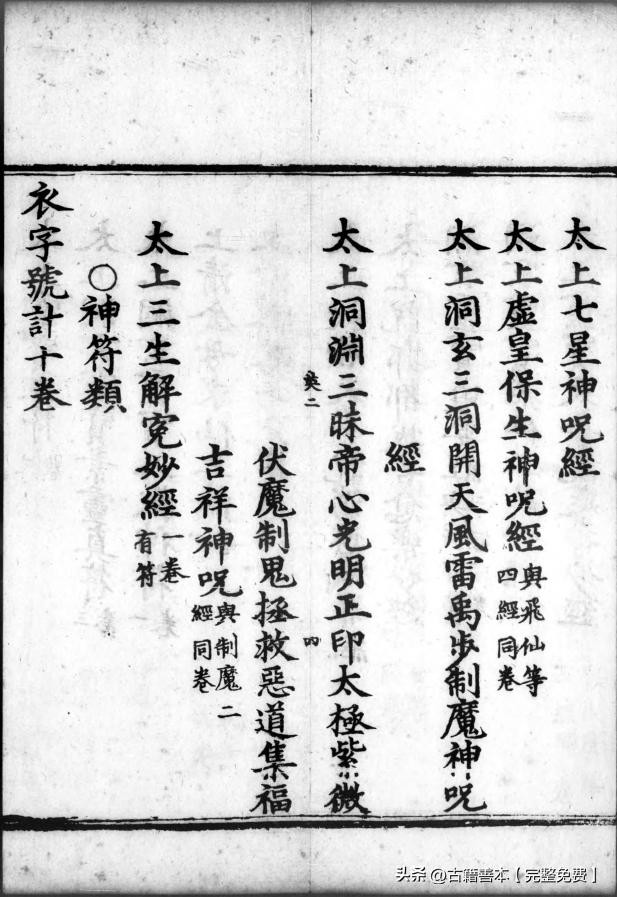 太上七星神呪經
太上虛皇保生神呪經與飛仙等四經同卷
太上洞玄三洞開天風雷禹步制魔神呪
經
太上洞淵三昧帝心光明正印太極紫微
伏魔制鬼拯救惡道集福
吉祥神呪與制魔二經同卷
太上三生解寃妙經一卷有符
〇神符類
衣字號計十卷
头条 @古籍善本【完整免费】